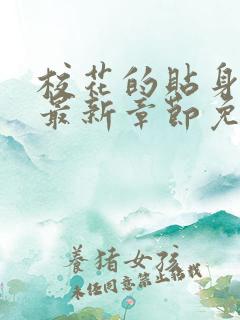 校花的貼身
最新章節免
養猪女孩
未经同意禁止转载